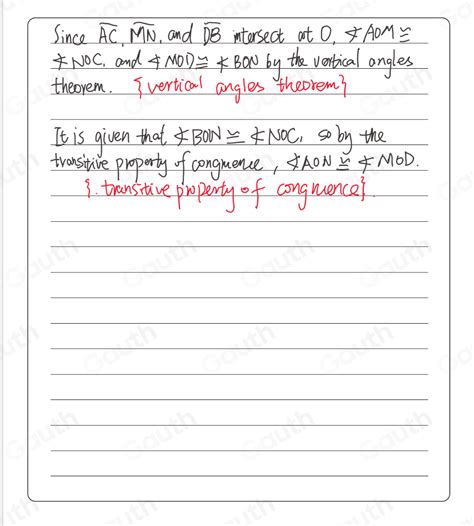 Since AC, MN, and DB intersect at O, ∢AOM ≅
∢NOC, and ∢MOD ≅ ∢BON by the vertical angles
theorem. {vertical angles theorem}
It is given that ∢BON ≅ ∢NOC, so by the
transitive property of congruence, ∢AON ≅ ∢MOD.
{.transitive property of congruence}.